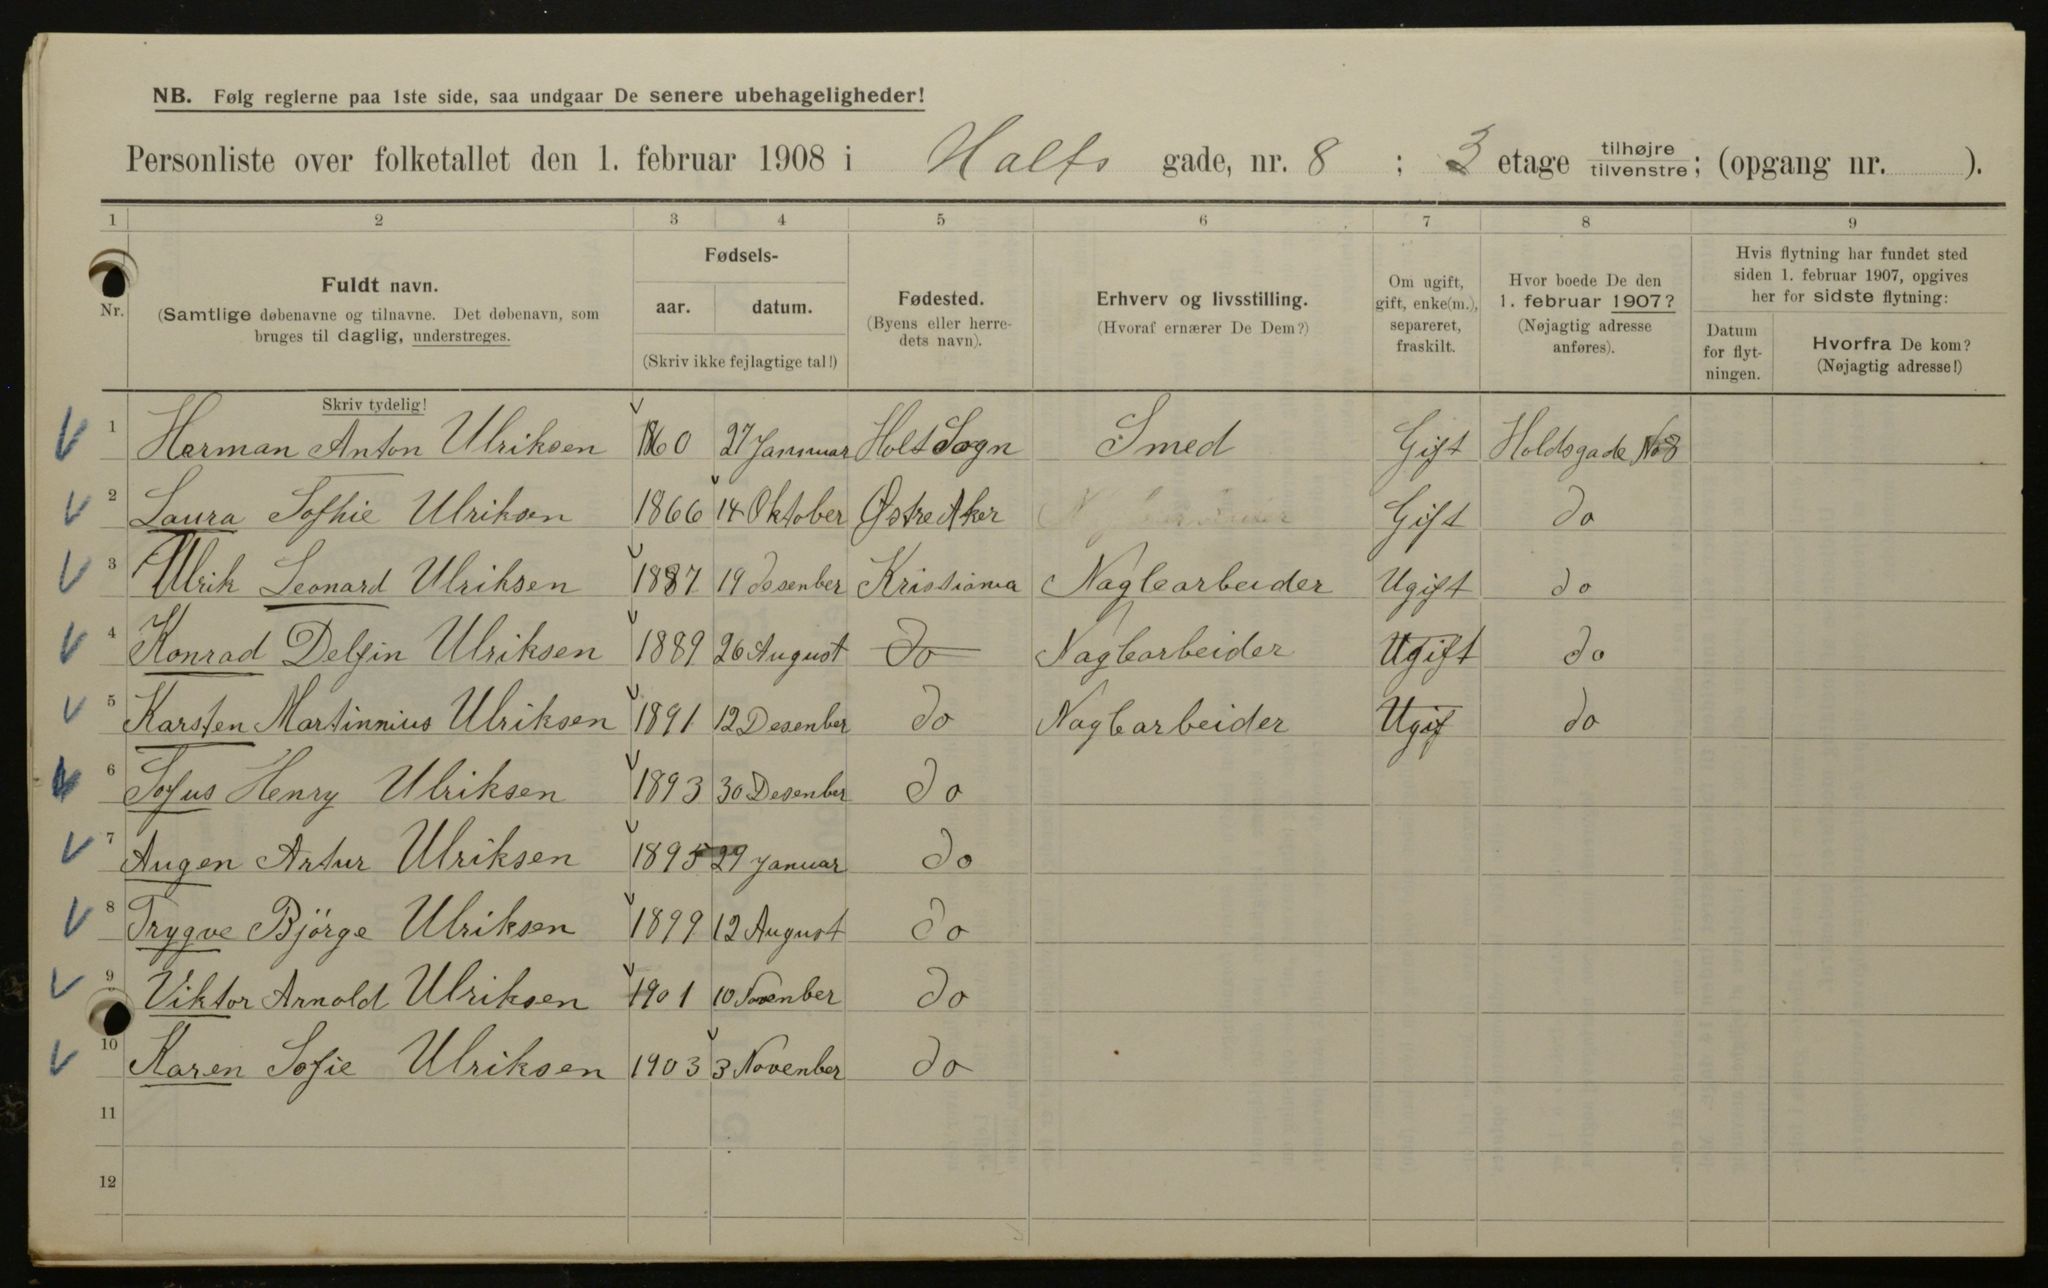 NB. Følg reglerne paa 1ste side, saa undgaar De senere ubehageligheder!
Personliste over folketallet den 1. februar 1908 i Halfs gade, nr. 8 ; 3 etage tilhøjre tilvenstre; (opgang nr. ).
1 2 3 4 5 6 7 8 9
Nr.
Fuldt navn.
(Samtlige døbenavne og tilnavne. Det døbenavn, som
bruges til daglig, understreges.
Skriv tydelig!
Fødsels-
aar. datum.
(Skriv ikke fejlagtige tal!)
Fødested.
(Byens eller herre-
dets navn).
Erhverv og livsstilling.
(Hvoraf ernærer De Dem?)
Om ugift,
gift, enke(m.),
separeret,
fraskilt.
Hvor boede De den
1. februar 1907?
(Nøjagtig adresse
anføres).
Hvis flytning har fundet sted
siden 1. februar 1907, opgives
her for sidste flytning:
Datum
for flyt-
ningen.
Hvorfra De kom?
(Nøjagtig adresse!)
1 Herman Anton Ulriksen 1860 27 Januar Holt Sogn Smed Gift Holdsgade No 8
2 Laura Sofhie Ulriksen 1866 14 Oktober Østre Aker Gift do
3 Ulrik Leonard Ulriksen 1887 19 desenber Kristiania Naglearbeider Ugift do
4 Konrad Delfin Ulriksen 1889 26 August do Naglearbeider Ugift do
5 Karsten Martinnius Ulriksen 1891 12 Desenber do Naglearbeider Ugif do
6 Sofus Henry Ulriksen 1893 30 Desenber do
7 Augen Artur Ulriksen 1895 29 Januar do
8 Trygve Björge Ulriksen 1899 12 August do
9 Viktor Arnold Ulriksen 1901 10 Novenber do
10 Karen Sofie Ulriksen 1903 3 Novenber do
11
12